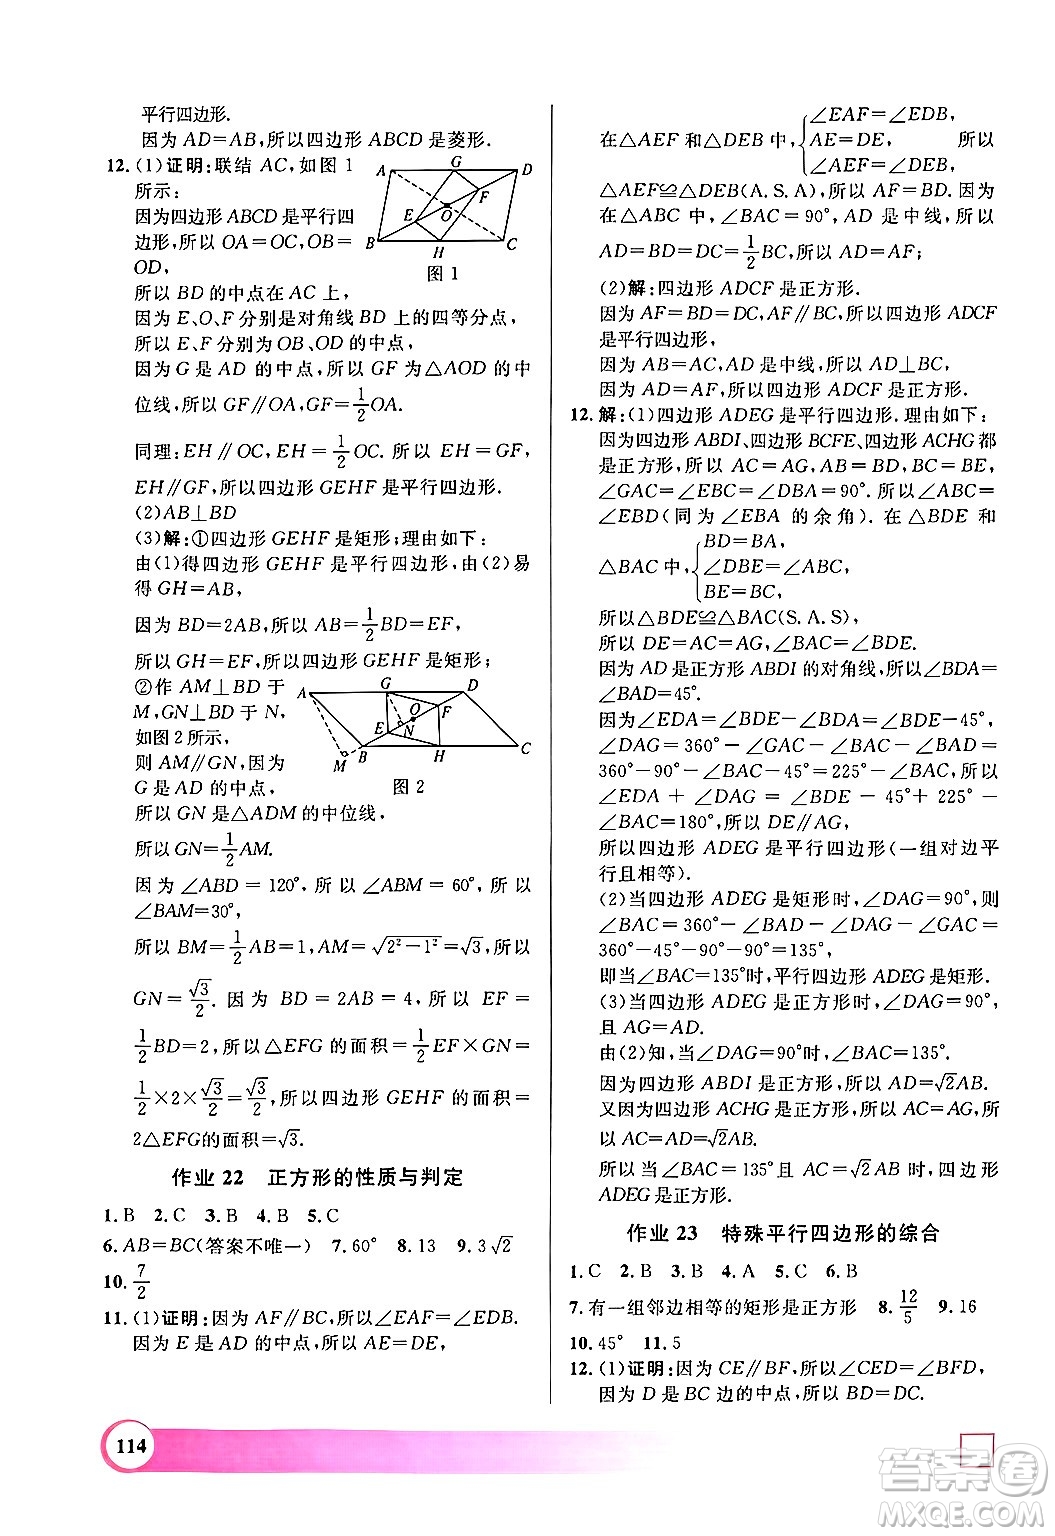 平行四边形.
因为 AD=AB,所以四边形 ABCD 是菱形.
12.(1)证明:联结 AC,如图 1
所示:
因为四边形 ABCD 是平行四
边形,所以 OA=OC,OB=
OD,
A G D
F
E O
B H C
图 1
所以 BD 的中点在 AC 上,
因为 E、O、F 分别是对角线 BD 上的四等分点,
所以 E、F 分别为 OB、OD 的中点,
因为 G 是 AD 的中点,所以 GF 为△AOD 的中
位线,所以 GF∥OA,GF=1/2 OA.
同理:EH∥OC,EH=1/2 OC. 所以 EH=GF,
EH∥GF,所以四边形 GEHF 是平行四边形.
(2)AB⊥BD
(3)解:①四边形 GEHF 是矩形;理由如下:
由(1)得四边形 GEHF 是平行四边形,由(2)易
得 GH=AB,
因为 BD=2AB,所以 AB=1/2 BD=EF,
所以 GH=EF,所以四边形 GEHF 是矩形;
②作 AM⊥BD 于
M,GN⊥BD 于 N,
如图 2 所示,
则 AM∥GN,因为
G 是 AD 的中点,
A G D
O F
E N
M B H C
图 2
所以 GN 是△ADM 的中位线,
所以 GN=1/2 AM.
因为∠ABD = 120°,所以∠ABM = 60°,所以
∠BAM=30°,
所以 BM=1/2 AB=1,AM=√(2²-1²)=√3,所以
GN=√3/2. 因为 BD=2AB=4,所以 EF=
1/2 BD=2,所以△EFG 的面积=1/2 EF×GN=
1/2×2×√3/2=√3/2,所以四边形 GEHF 的面积=
2△EFG的面积=√3.
作业 22 正方形的性质与判定
1.B 2.C 3.B 4.B 5.C
6.AB=BC(答案不唯一) 7.60° 8.13 9.3√2
10.7/2
11.(1)证明:因为 AF∥BC,所以∠AFE=∠EBD.
因为 E 是 AD 的中点,所以 AE=DE,
在△AEF 和△DEB 中, { ∠EAF=∠EDB,
AE=DE,
∠AEF=∠DEB, 所以
△AEF≌△DEB(A.S.A),所以 AF=BD. 因为
在△ABC 中,∠BAC=90°,AD 是中线,所以
AD=BD=DC=1/2 BC,所以 AD=AF;
(2)解:四边形 ADCF 是正方形.
因为 AF=BD=DC,AF∥BC,所以四边形 ADCF
是平行四边形,
因为 AB=AC,AD 是中线,所以 AD⊥BC,
因为 AD=AF,所以四边形 ADCF 是正方形.
12.解:(1)四边形 ADEG 是平行四边形.理由如下:
因为四边形 ABDI、四边形 BCFE、四边形 ACHG 都
是正方形,所以 AC=AG,AB=BD,BC=BE,
∠GAC=∠EBC=∠DBA=90°. 所以∠ABC=
∠EBD(同为∠EBA 的余角). 在△BDE 和
△BAC 中, { BD=BA,
∠DBE=∠ABC,
BE=BC,
所以△BDE≌△BAC(S.A.S),
所以 DE=AC=AG,∠BAC=∠BDE.
因为 AD是正方形 ABDI 的对角线,所以∠BDA=
∠BAD=45°.
因为∠EDA=∠BDE-∠BDA=∠BDE-45°,
∠DAG=360°-∠GAC-∠BAC-∠BAD=
360°-90°-∠BAC-45°=225°-∠BAC,所以
∠EDA + ∠DAG = ∠BDE - 45°+ 225° -
∠BAC=180°,所以 DE∥AG,
所以四边形 ADEG 是平行四边形(一组对边平
行且相等).
(2)当四边形 ADEG 是矩形时,∠DAG=90°,则
∠BAC=360°-∠BAD-∠DAG-∠GAC=
360°-45°-90°-90°=135°,
即当∠BAC=135°时,平行四边形 ADEG 是矩形.
(3)当四边形 ADEG 是正方形时,∠DAG=90°,
且 AG=AD.
由(2)知,当∠DAG=90°时,∠BAC=135°.
因为四边形 ABDI 是正方形,所以 AD=√2AB.
又因为四边形 ACHG 是正方形,所以 AC=AG,所
以 AC=√2AB.
所以当∠BAC=135°且 AC=√2AB 时,四边形
ADEG 是正方形.
作业 23 特殊平行四边形的综合
1.C 2.B 3.B 4.A 5.C 6.B
7.有一组邻边相等的矩形是正方形 8.12/5 9.16
10.45° 11.5
12.(1)证明:因为 CE∥BF,所以∠CED=∠BFD,
因为 D 是 BC 边的中点,所以 BD=DC.
114
答案圈
MXQE.COM